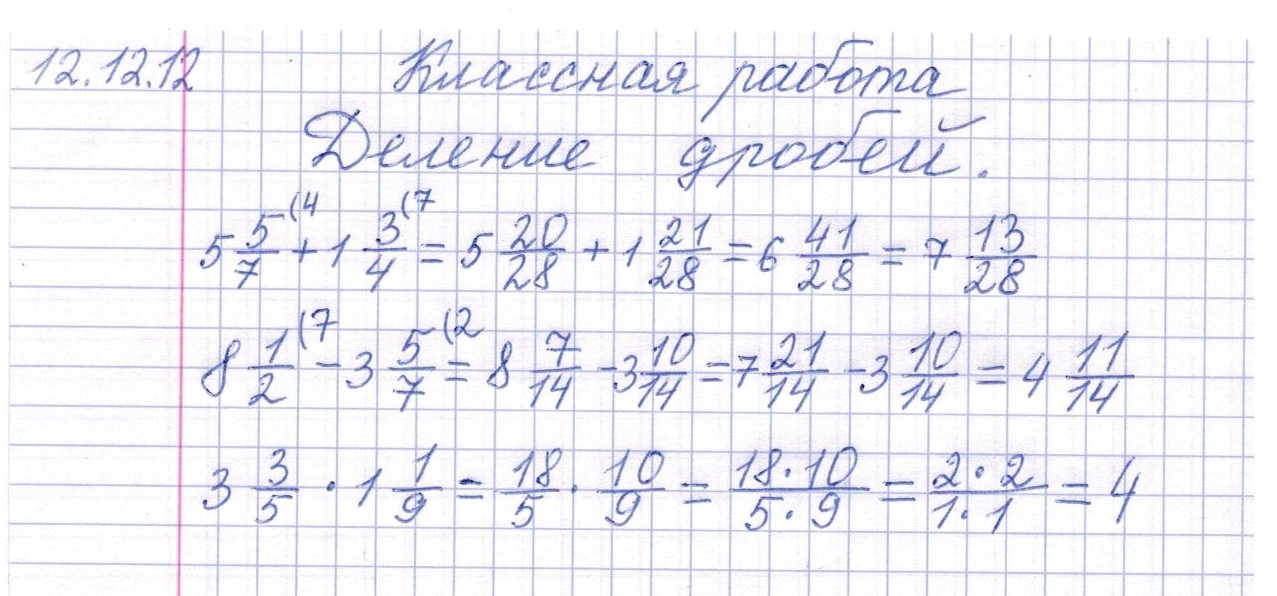 12.12.12 Классная работа
Деление дробей.
5 5/7 (4 + 1 3/4 (7 = 5 20/28 + 1 21/28 = 6 41/28 = 7 13/28
8 1/2 (7 - 3 5/7 (2 = 8 7/14 - 3 10/14 = 7 21/14 - 3 10/14 = 4 11/14
3 3/5 · 1 1/9 = 18/5 · 10/9 = 18·10/5·9 = 2·2/1·1 = 4